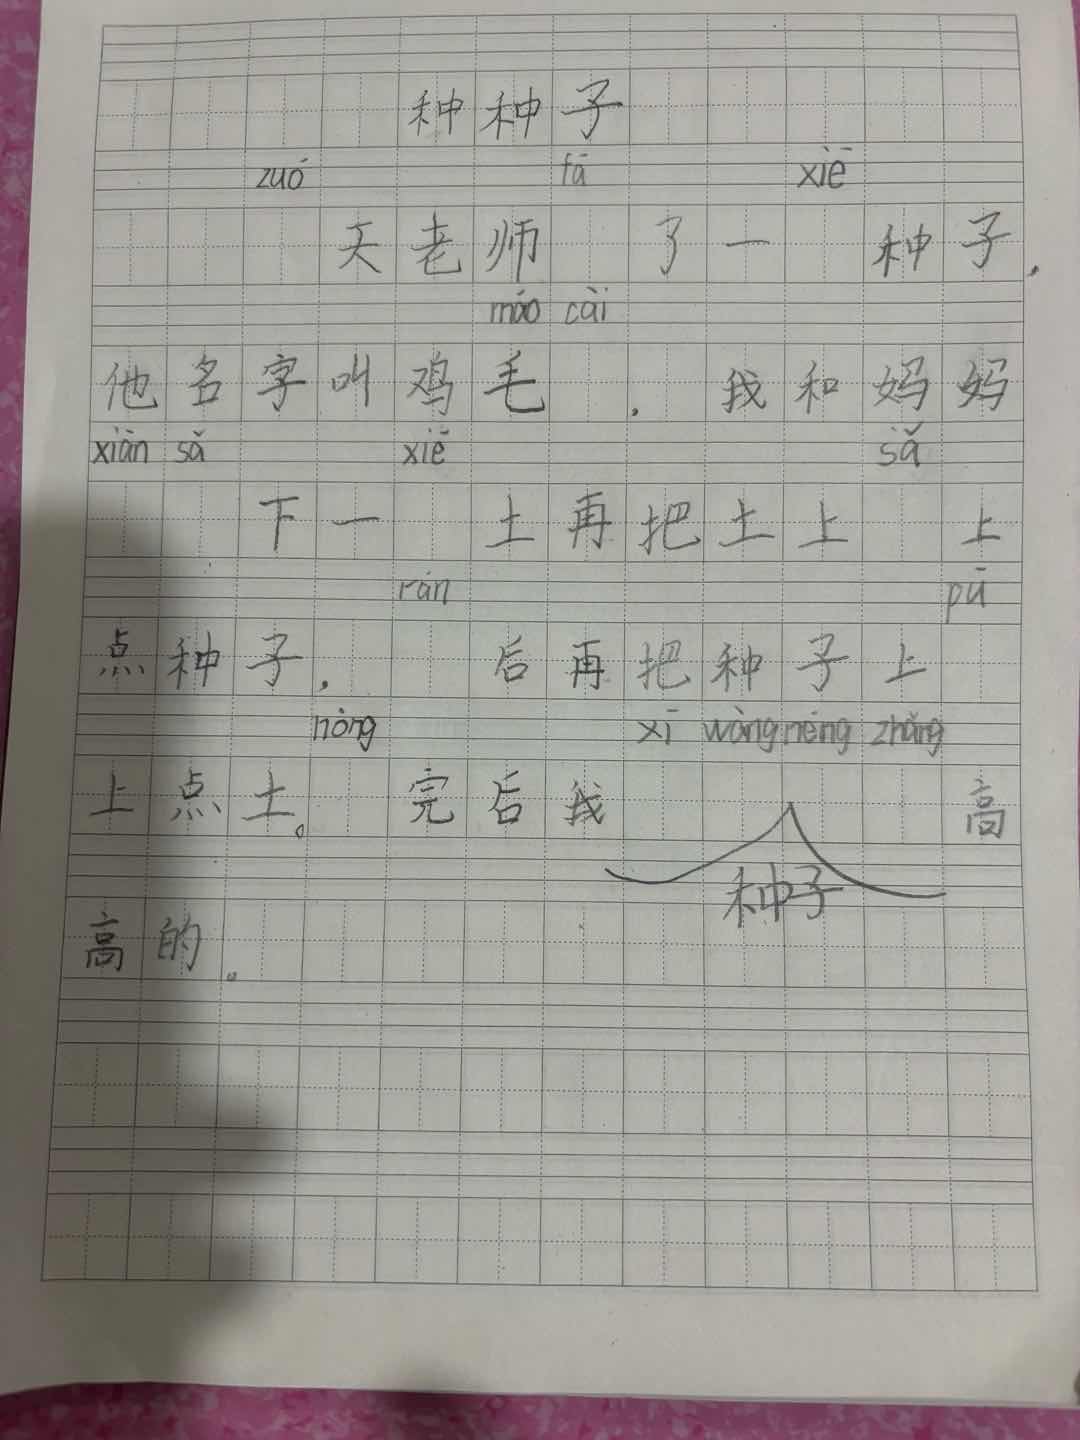 种种子
zuó fā xiē
天老师 了一 种子，
máo cài
他名字叫鸡毛 ，我和妈妈
xiān sǎ xiē sǎ
下一 土再把土上 上
rán pū
点种子， 后再把种子上
nòng xī wàng néng zhǎng
上点土。 完后我 高
种子
高的。